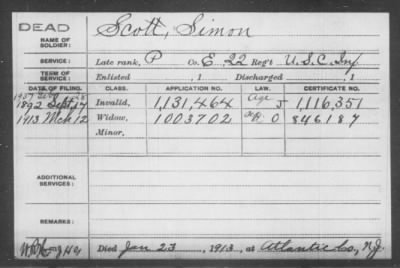 DEAD
NAME OF SOLDIER: Scott, Simon
SERVICE: Late rank, P Co. E, 22 Reg't U.S.C. Inf.
TERM OF SERVICE: Enlisted , 1 Discharged , 1
DATE OF FILING. CLASS. APPLICATION NO. LAW. CERTIFICATE NO.
1907
1892 Sept 17 Invalid, 1,131,464 Age J 1,116,351
1913 Mch 12 Widow, 1003702 O 846187
Minor,
ADDITIONAL SERVICES:
REMARKS:
Died Jan 23, 1913, at Atlantic Co, N.J.